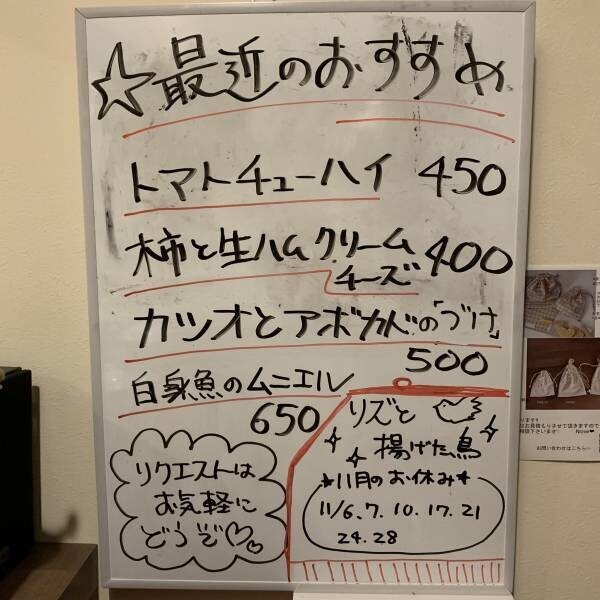 ☆最近のおすすめ
トマトチューハイ 450
柿と生ハムクリーム
チーズ 400
カツオとアボカドの「づけ」
500
白身魚のムニエル
650
リズと
揚げた鳥
*11月のお休み*
11/6.7.10.17.21
24.28
リクエストは
お気軽に
どうぞ♡♡
お問い合わせはこちら